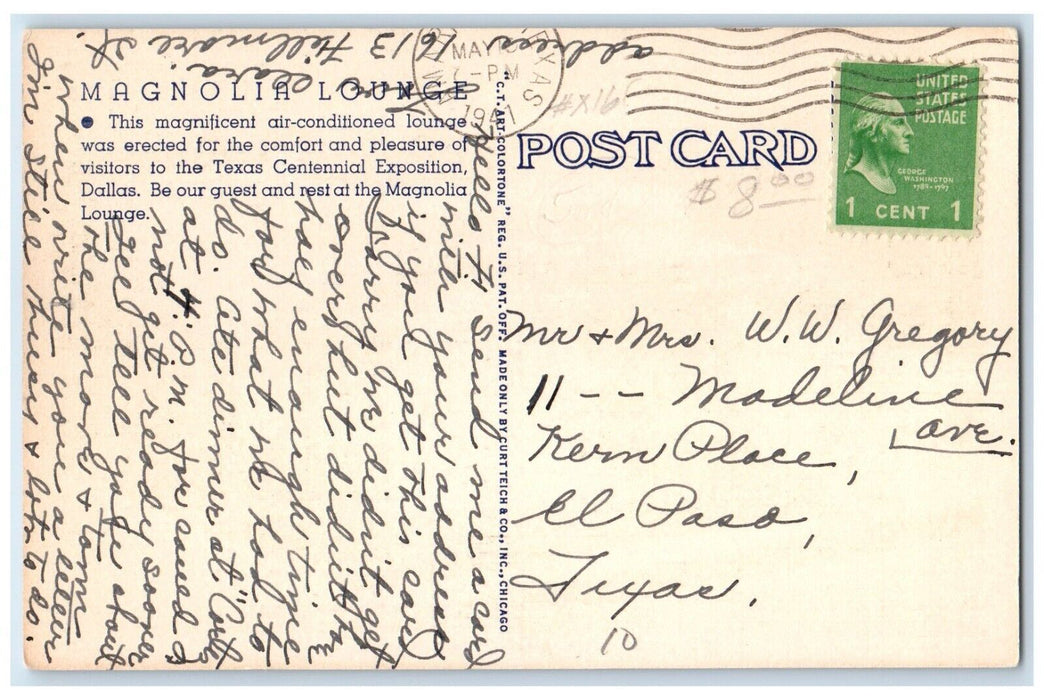 MAGNOLIA LOUNGE
● This magnificent air-conditioned lounge
was erected for the comfort and pleasure of
visitors to the Texas Centennial Exposition,
Dallas. Be our guest and rest at the Magnolia
Lounge.
C.T. ART-COLORTONE" REG. U.S. PAT. OFF. MADE ONLY BY CURT TEICH & CO., INC., CHICAGO
POST CARD
MAY
-PM
1941
TEXAS
UNITED
STATES
POSTAGE
GEORGE
WASHINGTON
1789-1797
1 CENT 1
$ 8.00
Mr + Mrs. W.W. Gregory
11 -- Madeline
Ave.
Kern Place,
El Paso,
Texas.
10
Hello "H" send me a card
with your address
if you get this card
Sorry we didn't get
over but didn't
have enough time
for what we had to
do. Ate dinner at "
at 4 P.M. Joe could
not get ready sooner
I tell you about
the more & Tom
when write you a letter
I'm still busy & lots to do.
Clara.
address 1613 Fillmore St.